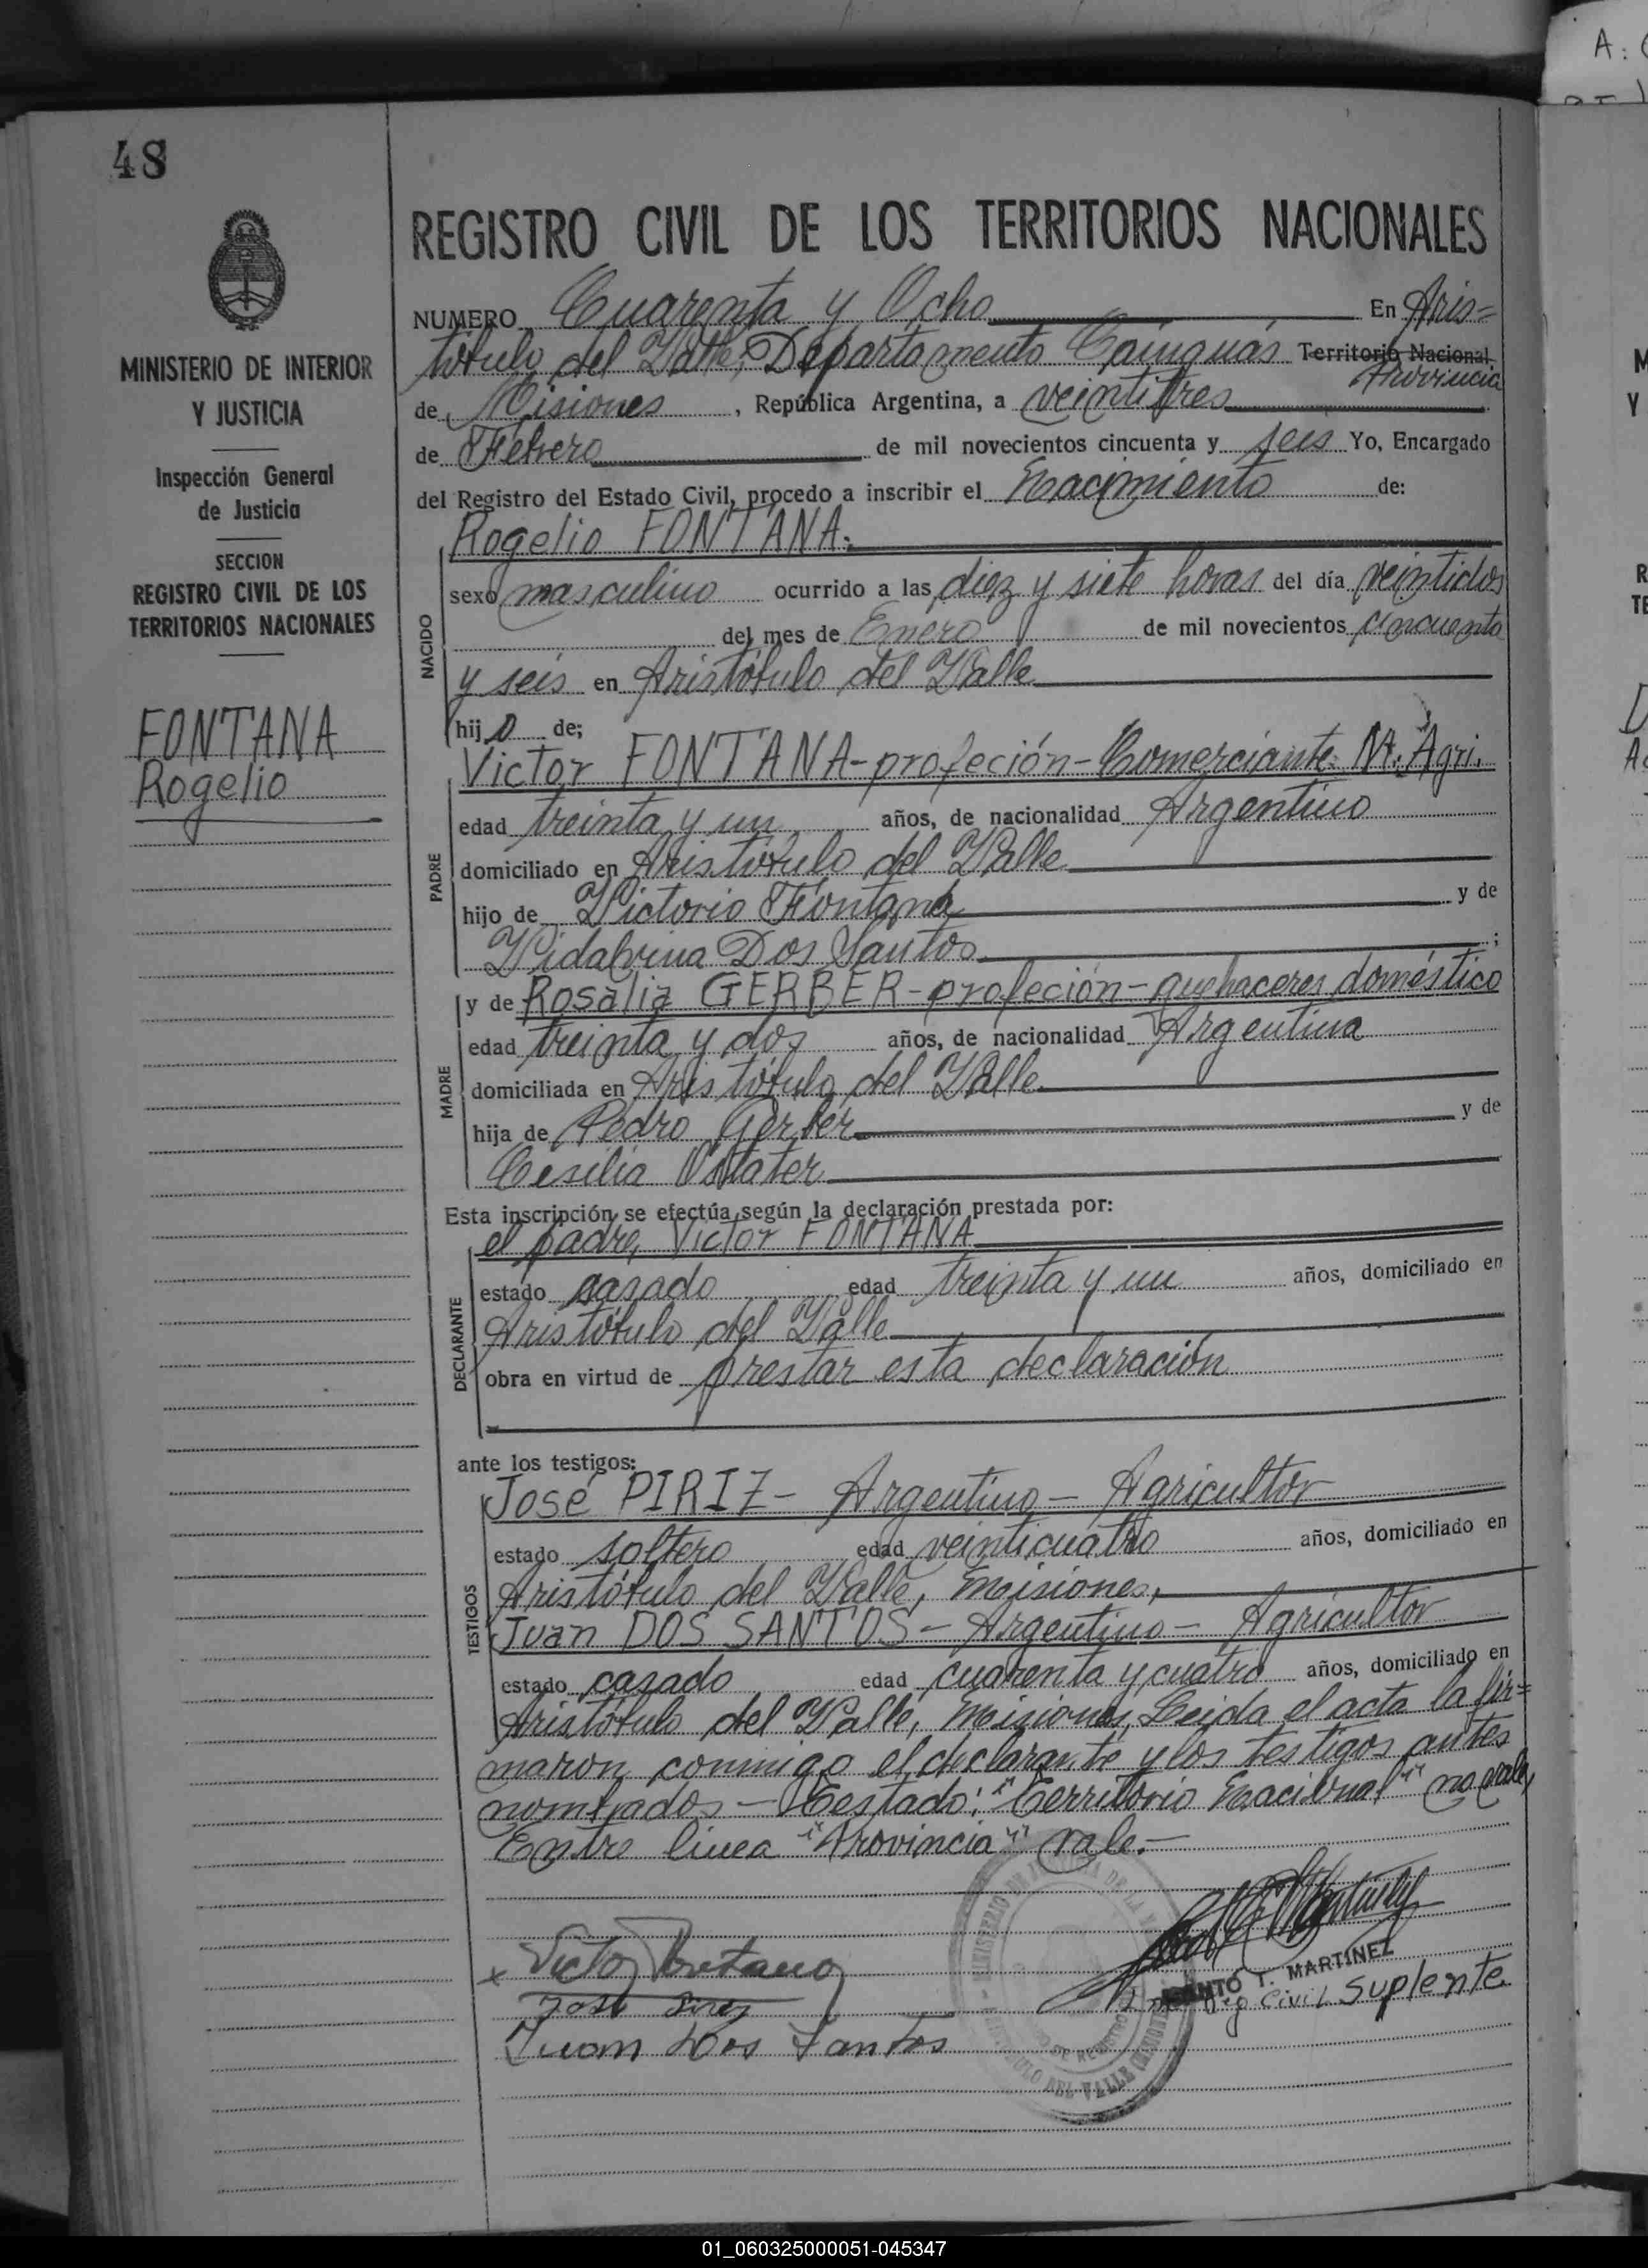 48
MINISTERIO DE INTERIOR
Y JUSTICIA
Inspección General
de Justicia
SECCION
REGISTRO CIVIL DE LOS
TERRITORIOS NACIONALES
FONTANA
Rogelio
REGISTRO CIVIL DE LOS TERRITORIOS NACIONALES
NUMERO Cuarenta y Ocho En Aris=
tóbulo del Valle, Departamento Cainguás Territorio Nacional
Provincia
de Misiones, República Argentina, a veintitres
de Febrero de mil novecientos cincuenta y seis Yo, Encargado
del Registro del Estado Civil, procedo a inscribir el Nacimiento de:
NACIDO
Rogelio FONTANA.
sexo masculino ocurrido a las diez y siete horas del día veintidos
del mes de Enero de mil novecientos cincuenta
y seis en Aristóbulo del Valle
hijo de;
PADRE
Victor FONTANA-profeción-Comerciante. M. Agri.
edad treinta y un años, de nacionalidad Argentino
domiciliado en Aristóbulo del Valle
hijo de Victorio Fontana y de
Vidalvina Dos Santos;
MADRE
y de Rosalia GERBER-profeción-quehaceres doméstico
edad treinta y dos años, de nacionalidad Argentina
domiciliada en Aristóbulo del Valle
hija de Pedro Gerber y de
Cesilia
Esta inscripción se efectúa según la declaración prestada por:
DECLARANTE
el padre, Victor FONTANA
estado casado edad treinta y un años, domiciliado en
Aristóbulo del Valle
obra en virtud de prestar esta declaración
ante los testigos:
TESTIGOS
José PIRIZ- Argentino- Agricultor
estado soltero edad veinticuatro años, domiciliado en
Aristóbulo del Valle, Misiones,
Juan DOS SANTOS- Argentino- Agricultor
estado casado edad cuarenta y cuatro años, domiciliado en
Aristóbulo del Valle, Misiones, Leida el acta la fir=
maron conmigo el declarante y los testigos antes
nombrados - Testado: "Territorio Nacional" no vale,
Entre linea "Provincia" vale.-
Victor Fontana
José Piriz
Juan Dos Santos
T. MARTINEZ
Reg Civil Suplente
DEL VALLE
01_060325000051-045347